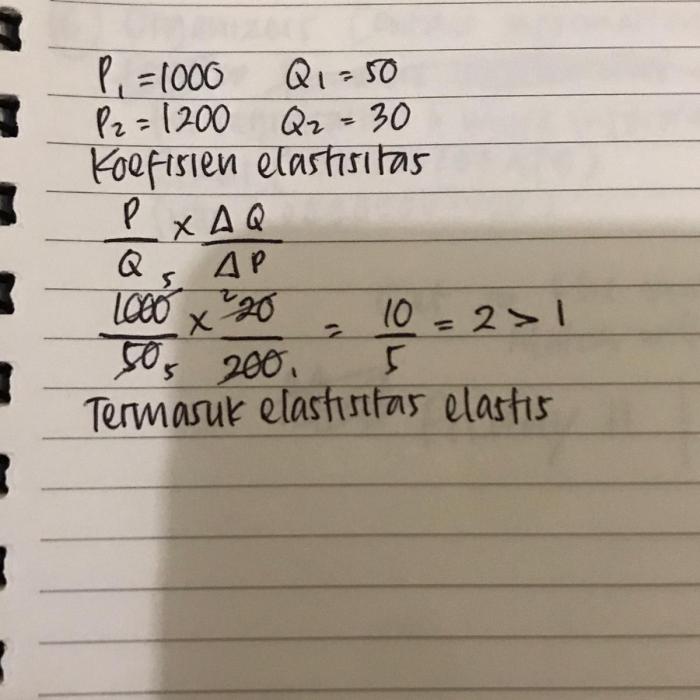 P₁ = 1000 Q₁ = 50
P₂ = 1200 Q₂ = 30
Koefisien elastisitas
P/Q x ΔQ/ΔP
1000/50 x 20/200 = 10/5 = 2 > 1
Termasuk elastisitas elastis